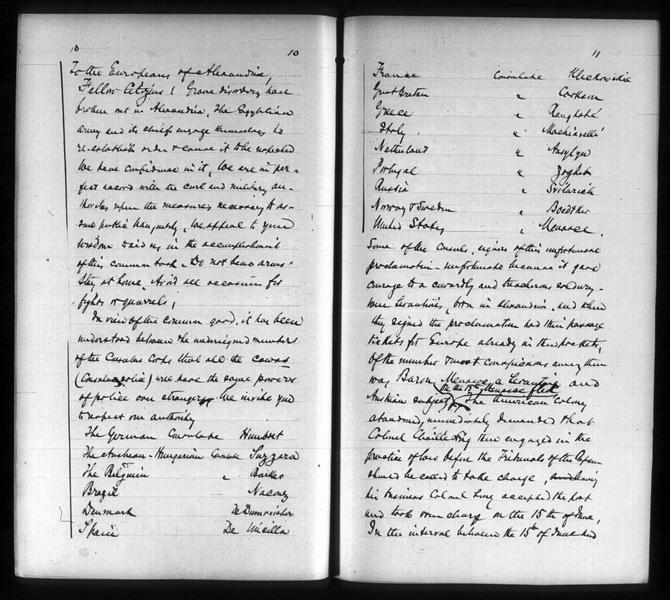 10 10
To the Europeans of Alexandria,
Fellow Citizens! Grave disorders have
broken out in Alexandria, The Egyptian
army and its chiefs engage themselves to
re-establish order & cause it to be respected
We have confidence in it, We are in per-
fect accord with the civil and military au-
thorities upon the measures necessary to as-
sure public tranquility, we appeal to your
wisdom to aid us in the accomplishment
of this common task. Do not bear arms.
Stay at home. Avoid all occasions for
fights or quarrels,
In view of the common good, it has been
understood between the undersigned members
of the Consular Corps that all the cawas
(Consular police) will have the same powers
of police over strangers We invite you
to respect our authority
The German Consulate Humbert
The Austrian-Hungarian Consul Suzzara
The Belgium " Barkes
Brazil Nacouz
Denmark De Dumreicher
Spain De Uncilla
11
France Consulate Kleckowskie
Great Britain " Cookson
Greece " Rangabé
Italy. " Machiavelli
Netherland "
Portugal " Zogheb
Russia "
Norway & Sweden " Boedtker
United States " Menasce.
Some of the Consuls, signers of this unfortunate
proclamation - unfortunate because it gave
courage to a cowardly and treacherous soldiery -
were Levantines, born in Alexandria, and when
they signed the proclamation had their passage
tickets for Europe already in their pockets,
Of the number most conspicuous among them
was Baron Menasce, a Levantine and
Austrian subject On the 15th Menasce fled The American Colony
abandoned, immediately demanded that
Colonel Chaillé Long then engaged in the
practice of law before the Tribunals of the
should be called to take charge,
his business Colonel Long accepted the post
and took over charge on the 15th of June,
In the interval between the 15th of June and